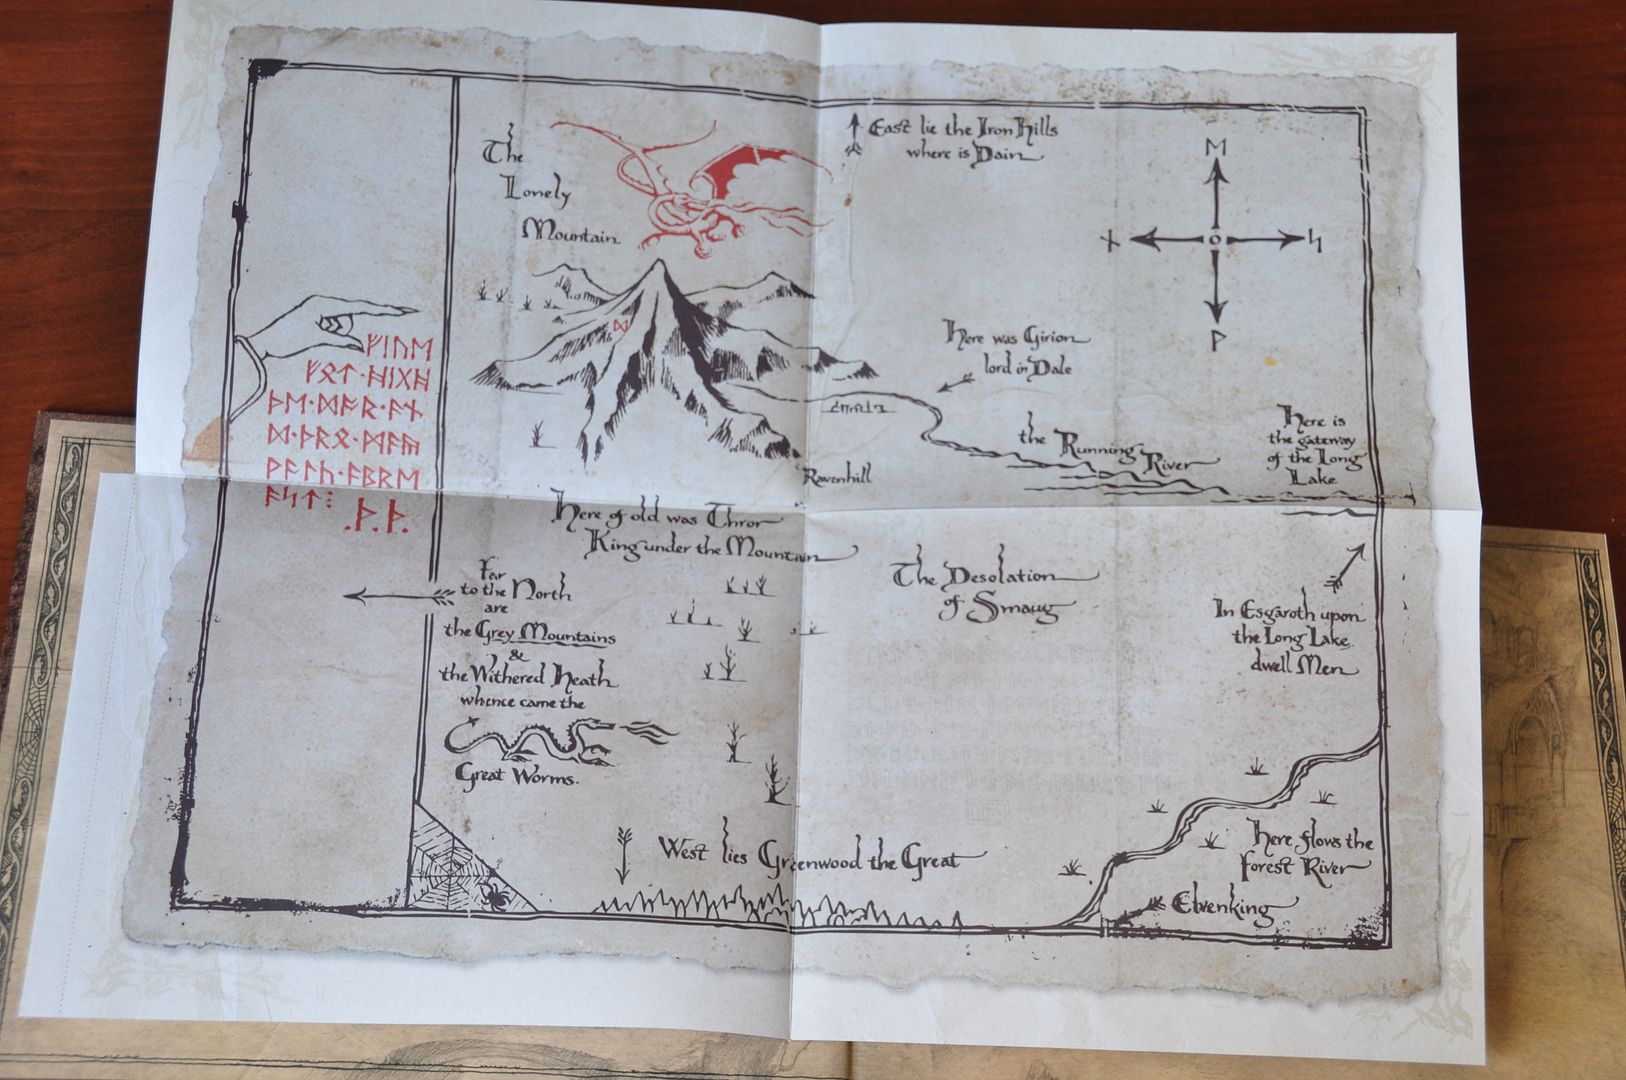 The
Lonely
Mountain
East lie the Iron Hills
where is Dain
ᛖ
ᚾ
ᛋ
ᚹ
ᛞ
ᚠᛁᚢᛖ
ᚠᛟᛏ᛫ᚻᛁᚷᚻ
ᚦᛖ᛫ᛞᚩᚱ᛫ᚪᚾ
ᛞ᛫ᚦᚱᛟ᛫ᛗᚪᚣ
ᚹᚪᛚᚳ᛫ᚪᛒᚱᛖ
ᚪᛋᛏ⁝
᛫ᚦ᛫ᚦ᛫
Here was Girion
lord in Dale
the Running River
Here is
the gateway
of the Long
Lake
Ravenhill
Here of old was Thror
King under the Mountain
Far
to the North
are
the Grey Mountains
&
the Withered Heath
whence came the
Great Worms.
The Desolation
of Smaug
In Esgaroth upon
the Long Lake
dwell Men
West lies Greenwood the Great
Here flows the
Forest River
Elvenking